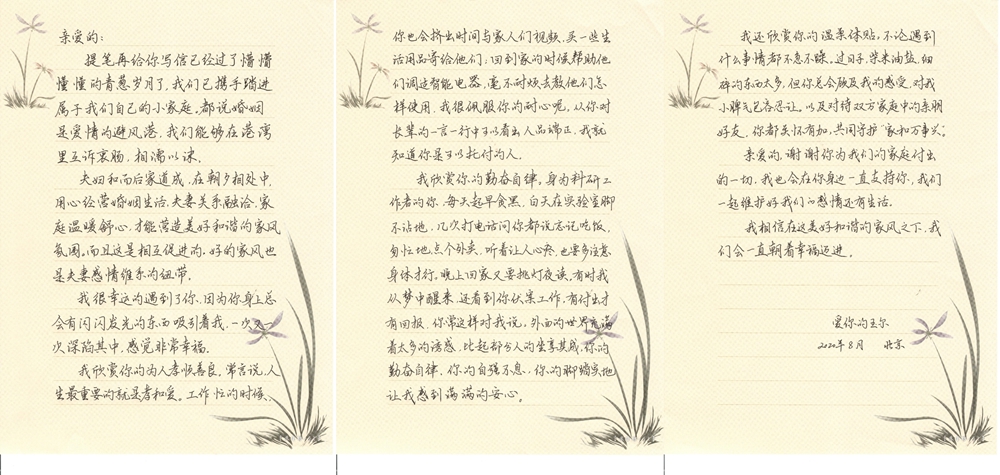 亲爱的：
提笔再给你写信已经过了懵懵
懂懂的青葱岁月了，我们已携手踏进
属于我们自己的小家庭。都说婚姻
是爱情的避风港，我们能够在港湾
里互诉衷肠，相濡以沫。
夫妇和而后家道成，在朝夕相处中，
用心经营婚姻生活，夫妻关系融洽，家
庭温暖舒心，才能营造美好和谐的家风
氛围。而且这是相互促进的，好的家风也
是夫妻感情维系的纽带。
我很幸运的遇到了你，因为你身上总
会有闪闪发光的东西吸引着我，一次又一
次深陷其中，感觉非常幸福。
我欣赏你的为人孝顺善良。常言说，人
生最重要的就是孝和爱。工作忙的时候，
你也会挤出时间与家人们视频，买一些生
活用品寄给他们；回到家的时候帮助他
们调适智能电器，毫不耐烦去教他们怎
样使用，我很佩服你的耐心呢，从你对
长辈的一言一行中可以看出人品端正，我就
知道你是可以托付的人。
我欣赏你的勤奋自律。身为科研工
作者的你，每天起早贪黑，白天在实验室脚
不沾地，几次打电话问你都说忘记吃饭，
匆忙地点个外卖，听着让人心疼，也要多注意
身体才行。晚上回家又要挑灯夜读，有时我
从梦中醒来，还看到你伏案工作，有付出才
有回报，你常这样对我说，外面的世界充满
着太多的诱惑，比起部分人的坐享其成，你的
勤奋自律，你的自强不息，你的脚踏实地
让我感到满满的安心。
我还欣赏你的温柔体贴，不论遇到
什么事情都不急不躁，过日子，柴米油盐，细
碎的东西太多，但你总会顾及我的感受，对我
小脾气包容忍让。以及对待双方家庭中的亲朋
好友，你都关怀有加，共同守护“家和万事兴”。
亲爱的，谢谢你为我们的家庭付出
的一切，我也会在你身边一直支持你，我们
一起维护好我们的感情还有生活。
我相信在这美好和谐的家风之下，我
们会一直朝着幸福迈进。
爱你的王尔
2020年8月 北京